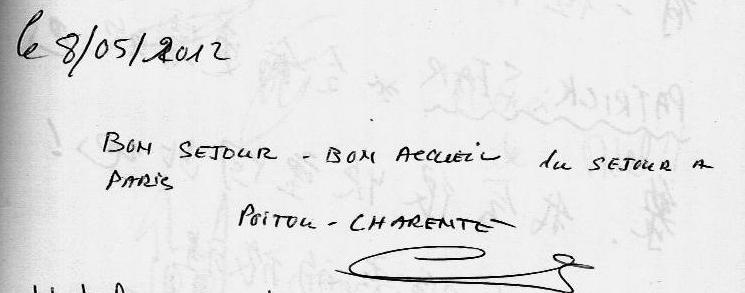 le 8/05/2012
BON SEJOUR - BON ACCUEIL du SEJOUR A
PARIS
POITOU - CHARENTE